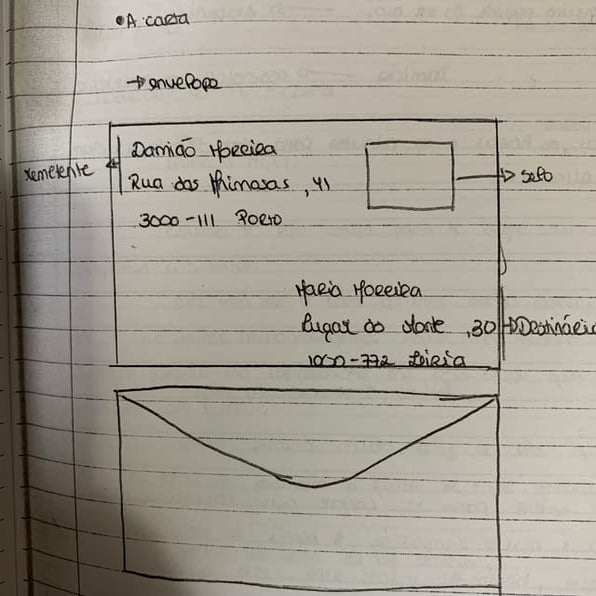 • A carta
→ envelope
Damião Moreira
remetente
Rua das Mimosas, 41
→ selo
3000-111 Porto
Maria Moreira
Lugar do Monte, 30
→ Destinário
1050-772 Leiria